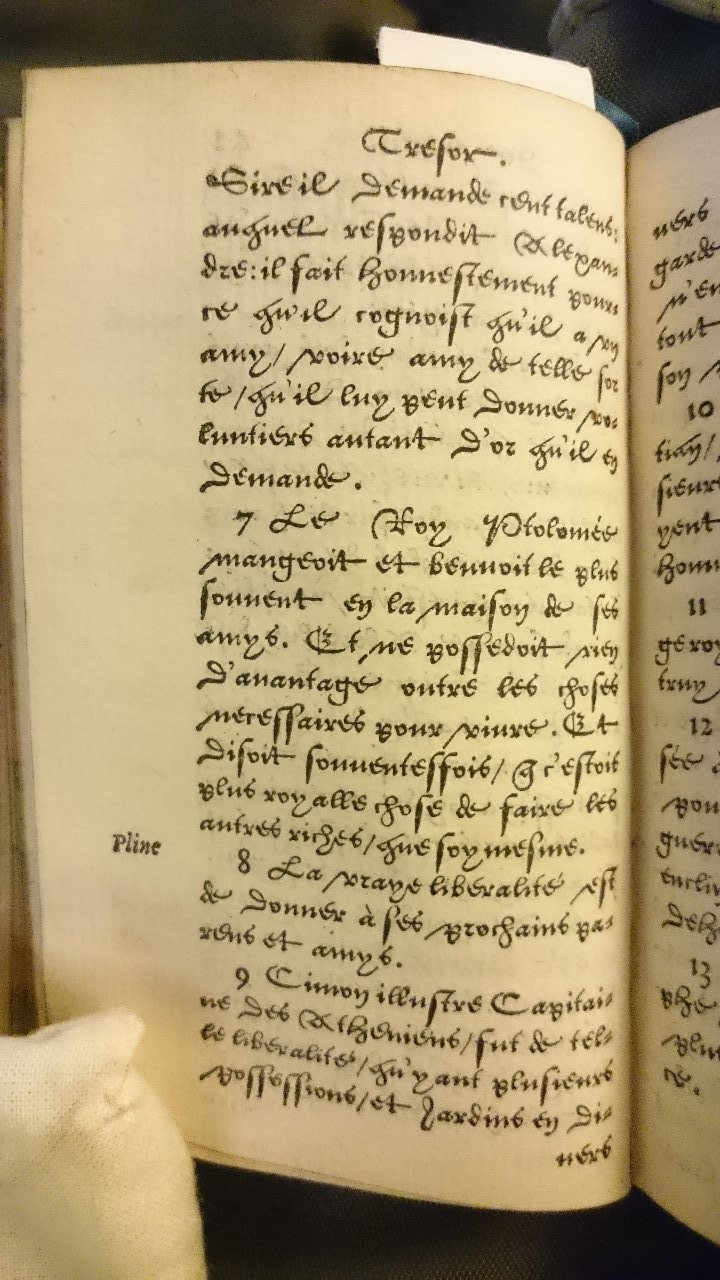 Tresor.
Sire il demande cent talens:
auquel respondit Alexan-
dre: il fait honnestement pour-
ce qu'il cognoist qu'il a vn
amy/ voire amy de telle sor
te/qu'il luy peut donner vo-
luntiers autant d'or qu'il en
demande.
7 Le Roy Ptolomée
mangeoit et beuuoit le plus
souuent en la maison de ses
amys. Et ne possedoit rien
d'auantage outre les choses
necessaires pour viure. Et
disoit souuentesfois/ q̃ c'estoit
plus royalle chose de faire les
autres riches/que soymesme.
Pline
8 La vraye liberalité est
de donner à ses prochains pa-
rens et amys.
9 Cimon illustre Capitai-
ne des Atheniens/fut de tel-
le liberalité/qu'yant plusieurs
possessions/et Jardins en di-
uers
uers
garde
n'en
tout
son
10
tian/
sieurs
peut
honn
11
ge roy
truy
12
sée
pou
guer
enclin
deh
13
phe
plus
ce.